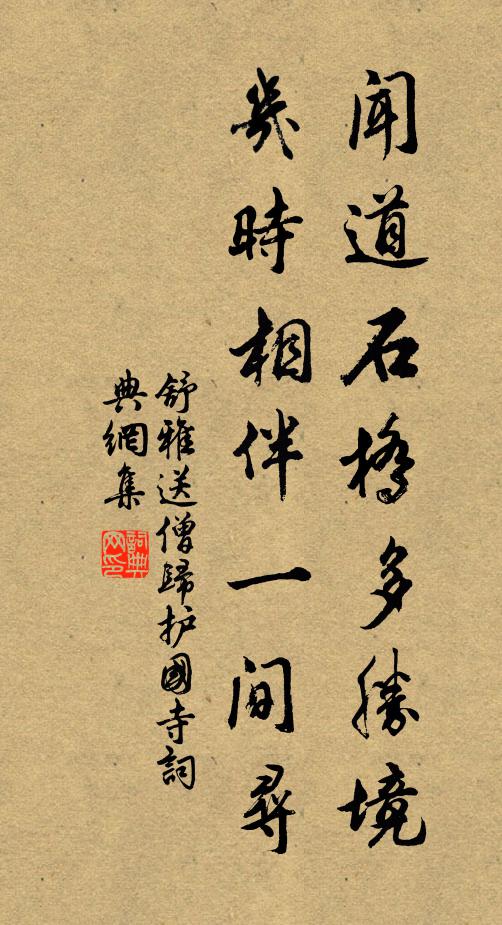 聞道石橋多勝境
幾時相伴一間尋
舒雅送僧歸护國寺詞
典網集
詞典
网印